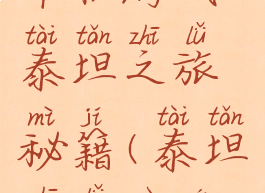 tài tǎn zhī lǚ
泰坦之旅
mì jí tài tǎn
秘籍(泰坦